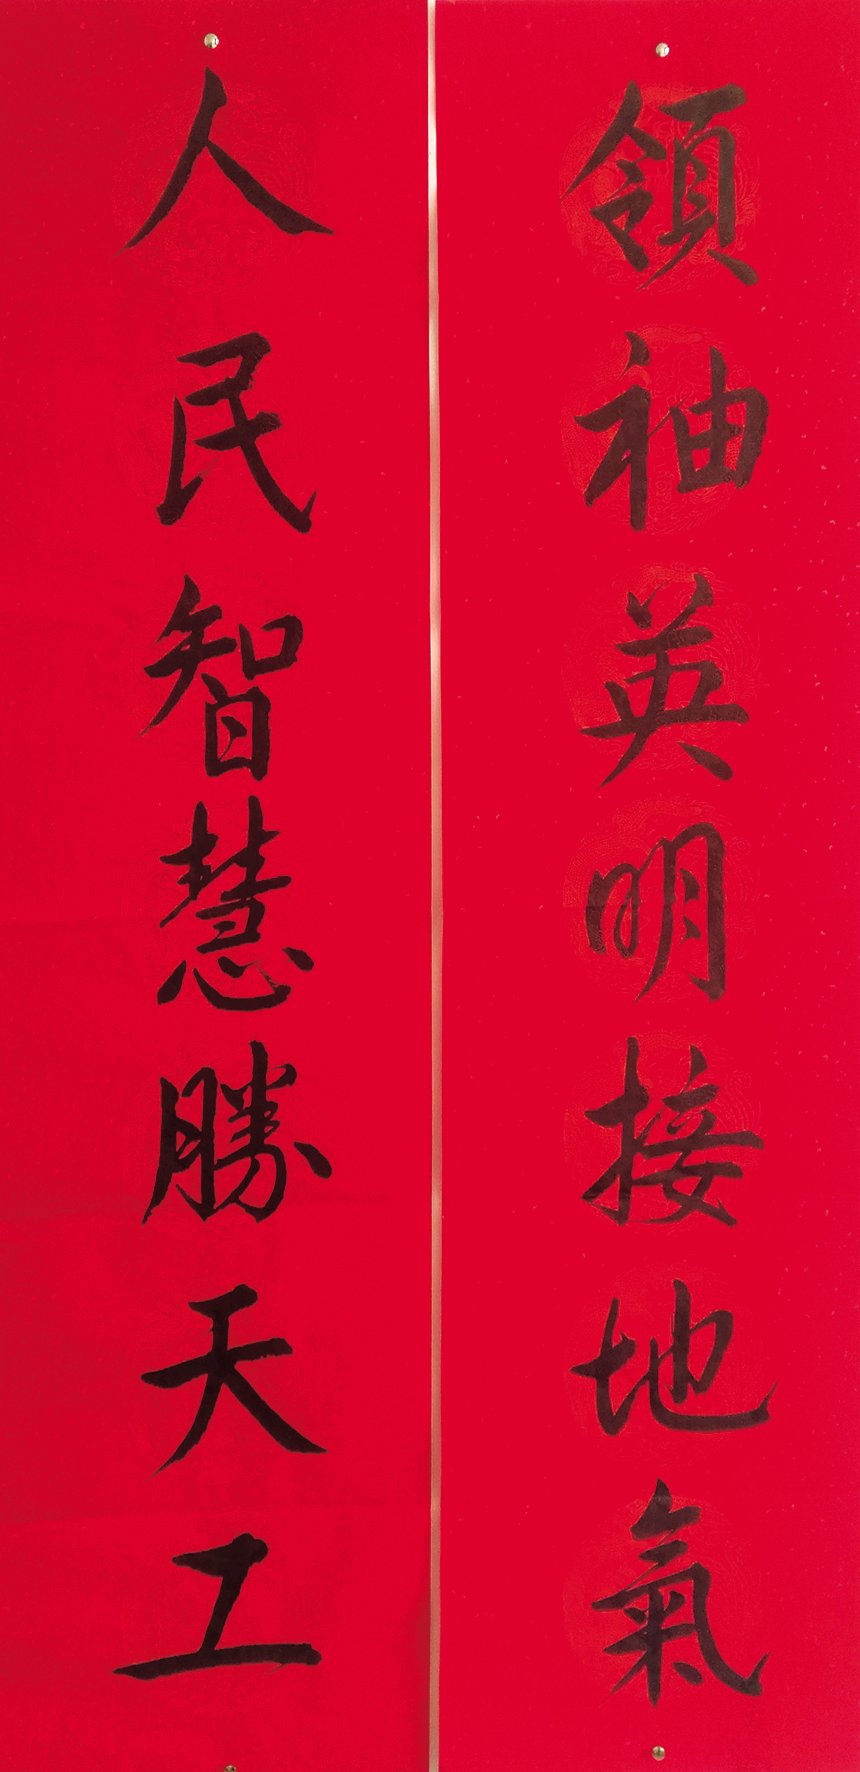 領袖英明接地氣
人民智慧勝天工